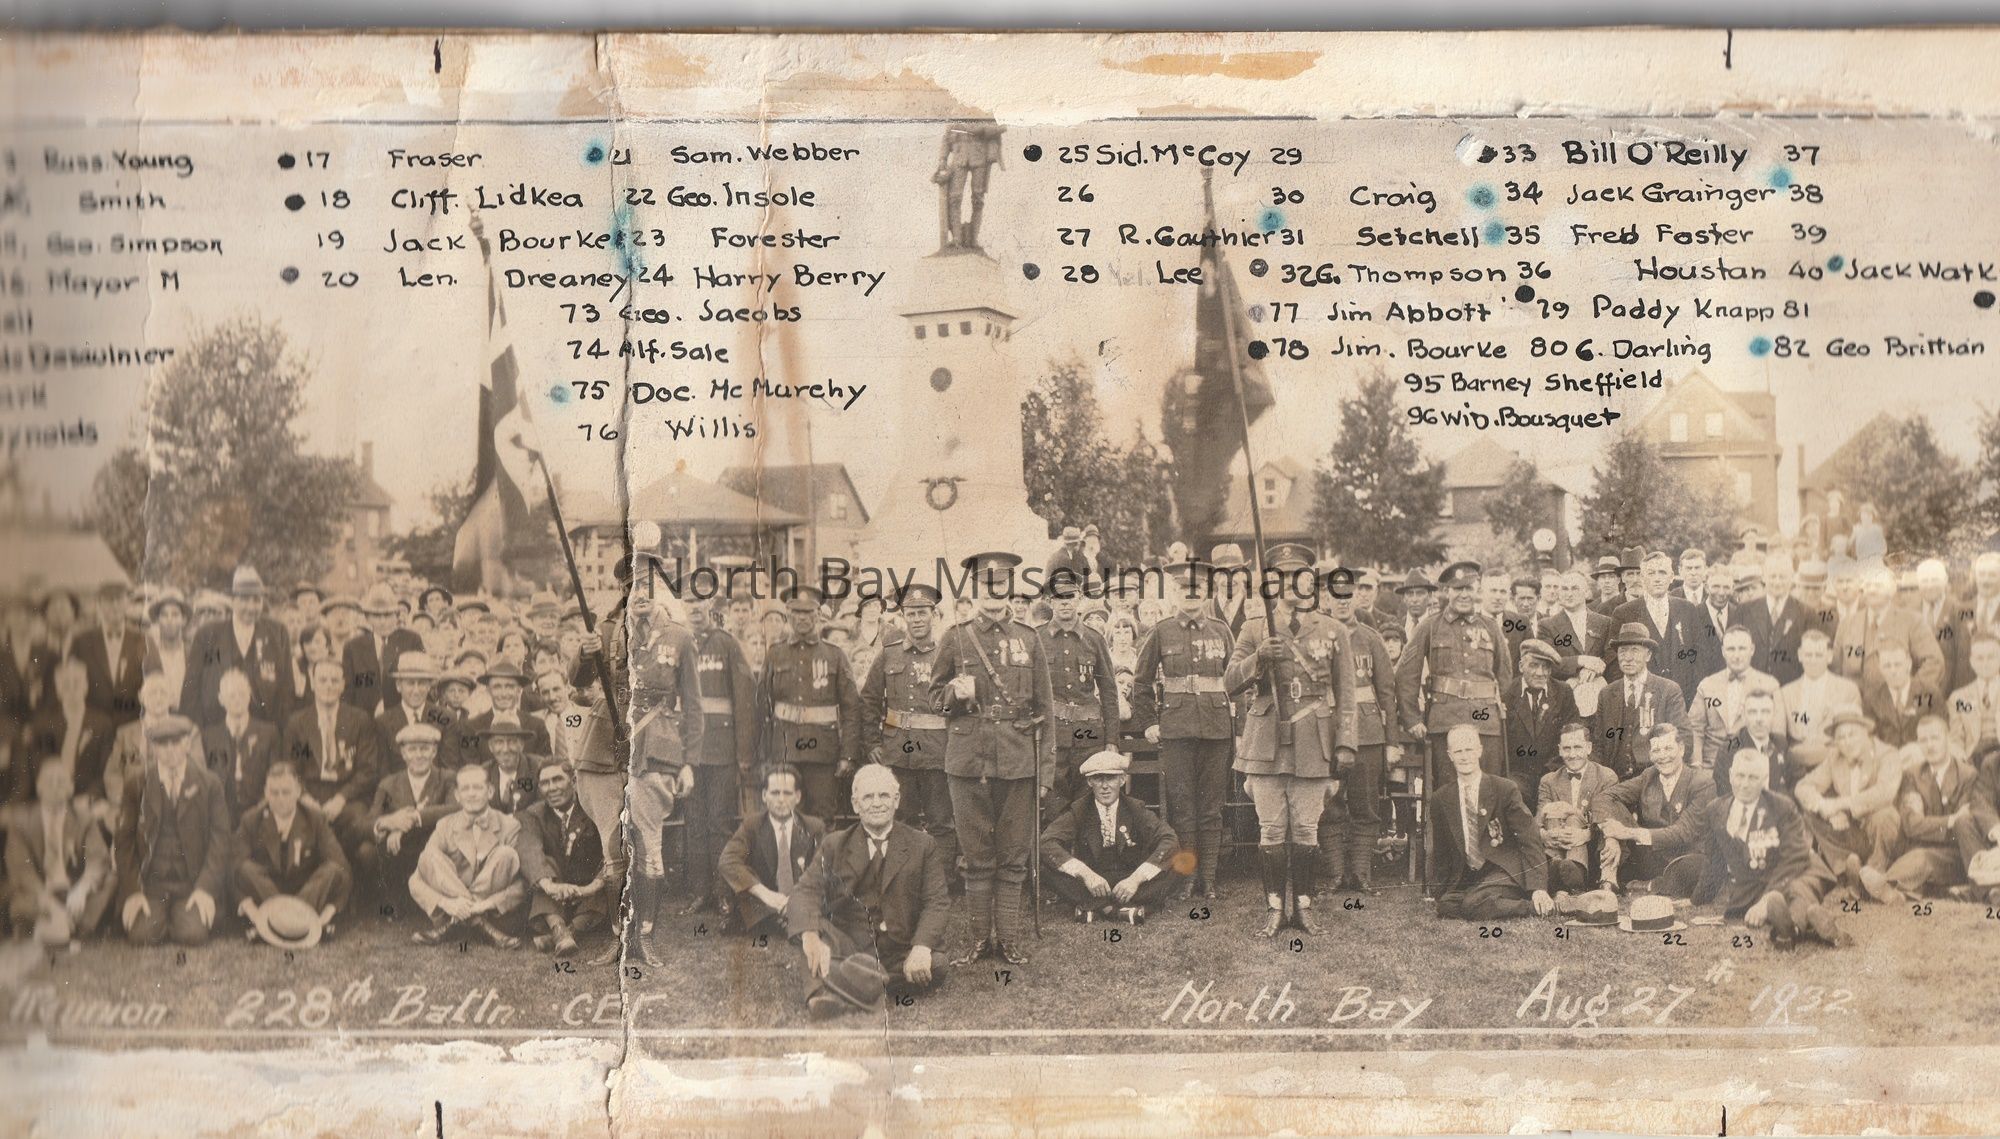 Russ. Young
Smith
Geo. Simpson
Mayor M
Desaulnier
17 Fraser
18 Cliff. Lidkea
19 Jack Bourke
20 Len. Dreaney
21 Sam. Webber
22 Geo. Insole
23 Forester
24 Harry Berry
73 Geo. Jacobs
74 Alf. Sale
75 Doc. McMurchy
76 Willis
25 Sid. McCoy
26
27 R. Gauthier
28 Lee
29
30 Craig
31 Setchell
32 G. Thompson
77 Jim Abbott
78 Jim. Bourke
33 Bill O'Reilly
34 Jack Grainger
35 Fred Foster
36 Houstan
79 Paddy Knapp
80 G. Darling
95 Barney Sheffield
96 Wid. Bousquet
37
38
39
40 Jack Watk
81
82 Geo Brittian
North Bay Museum Image
51
55
56
57
58
59
60
61
62
65
96
68
69
66
67
70
72
74
76
77
80
8
9
10
11
12
13
14
15
16
17
18
63
19
64
20
21
22
23
24
25
Reunion 228th Battn. C.E.F.
North Bay Aug 27th 1932